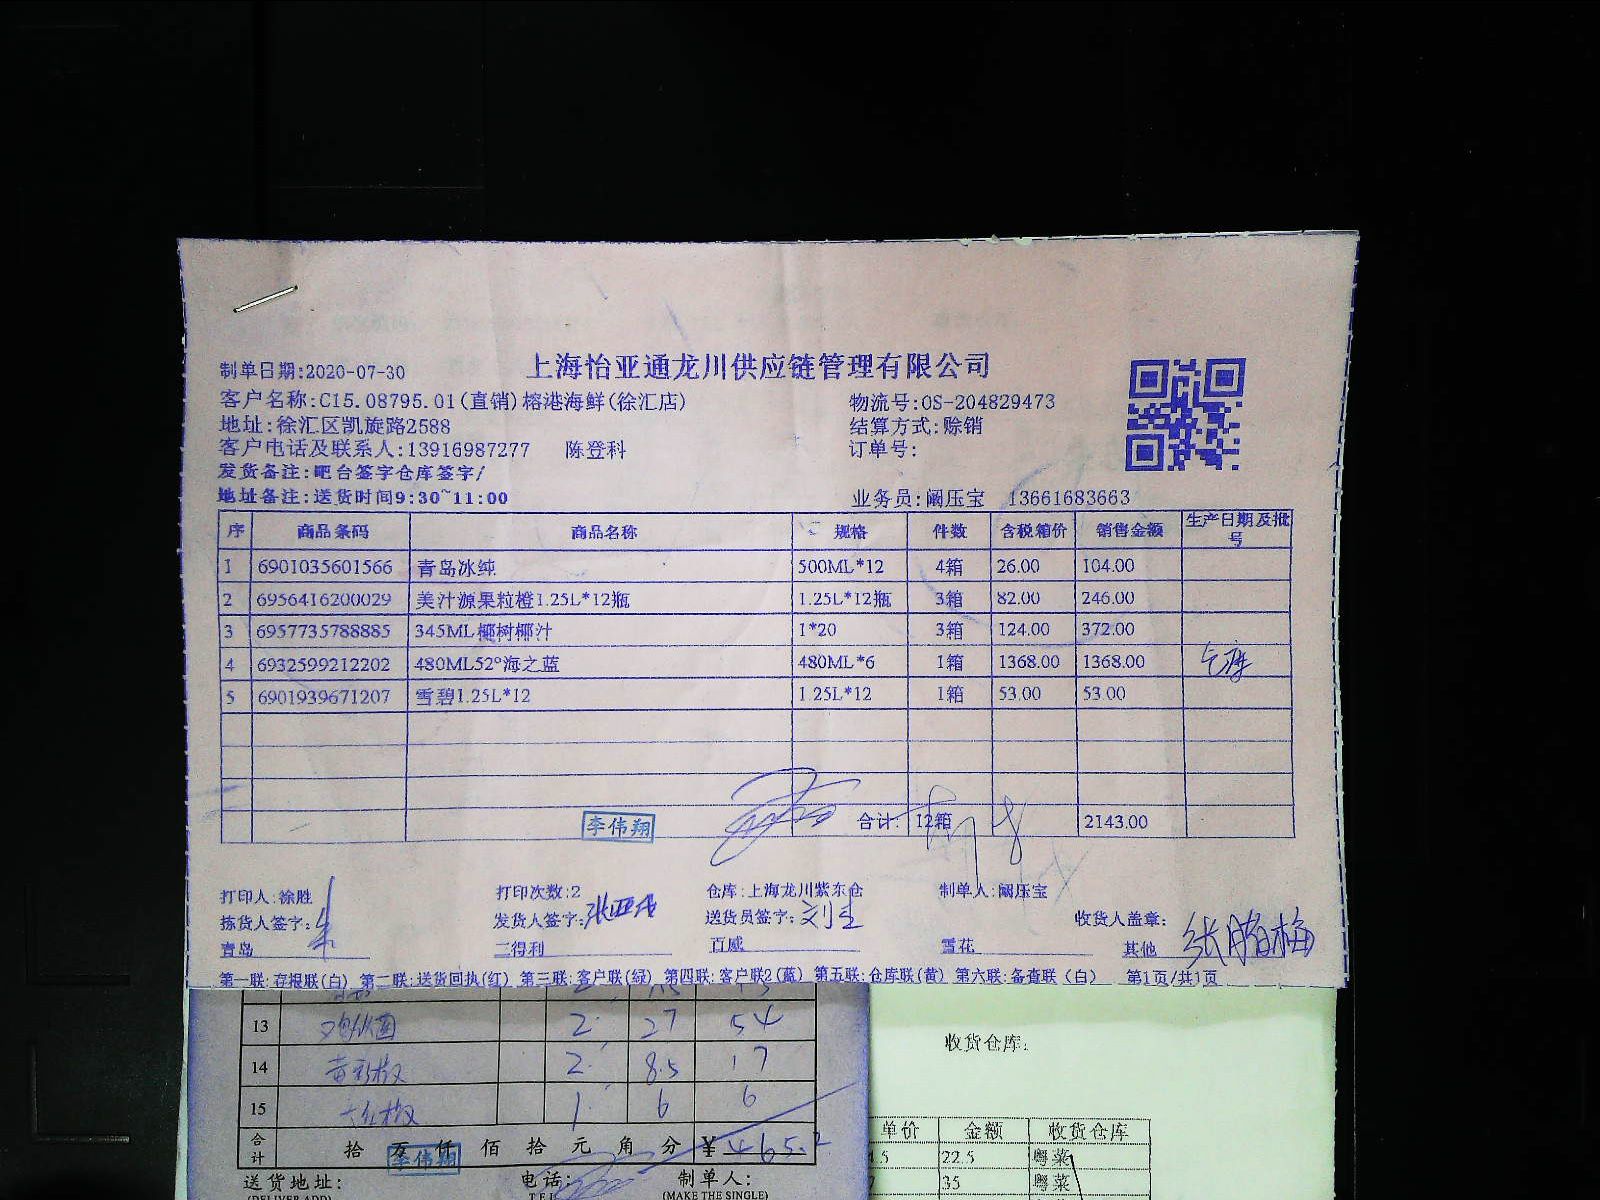 上海怡亚通龙川供应链管理有限公司
制单日期:2020-07-30
客户名称:C15.08795.01(直销)榕港海鲜(徐汇店) 物流号:OS-204829473
地址:徐汇区凯旋路2588 结算方式:赊销
客户电话及联系人:13916987277 陈登科 订单号:
发货备注:吧台签字仓库签字/
地址备注:送货时间9:30~11:00 业务员:阚压宝 13661683663
序 商品条码 商品名称 规格 件数 含税箱价 销售金额 生产日期及批号
1 6901035601566 青岛冰纯 500ML*12 4箱 26.00 104.00
2 6956416200029 美汁源果粒橙1.25L*12瓶 1.25L*12瓶 3箱 82.00 246.00
3 6957735788885 345ML椰树椰汁 1*20 3箱 124.00 372.00
4 6932599212202 480ML52°海之蓝 480ML*6 1箱 1368.00 1368.00
5 6901939671207 雪碧1.25L*12 1.25L*12 1箱 53.00 53.00
李伟翔 合计: 12箱 2143.00
打印人:徐胜 打印次数:2 仓库:上海龙川紫东仓 制单人:阚压宝
拣货人签字: 发货人签字: 送货员签字: 收货人盖章:
青岛 三得利 百威 雪花 其他
第一联:存根联(白) 第二联:送货回执(红) 第三联:客户联(绿) 第四联:客户联2(蓝) 第五联:仓库联(黄) 第六联:备查联(白) 第1页/共1页
13 2 27 54
14 黄彩椒 2 8.5 17
15 1 6 6
合计 拾 万 仟 佰 拾 元 角 分 ¥ 465.2
李伟翔
送货地址: 电话: 制单人:
(DELIVER ADD) TEL (MAKE THE SINGLE)
收货仓库:
单价 金额 收货仓库
22.5 粤菜
35 粤菜